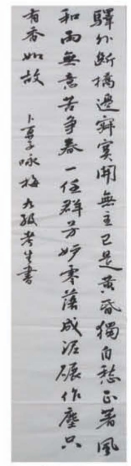 驛外斷橋邊寂寞開無主已是黃昏獨自愁更著風
和雨無意苦爭春一任群芳妒零落成泥碾作塵只
有香如故
卜算子詠梅 九級考生書